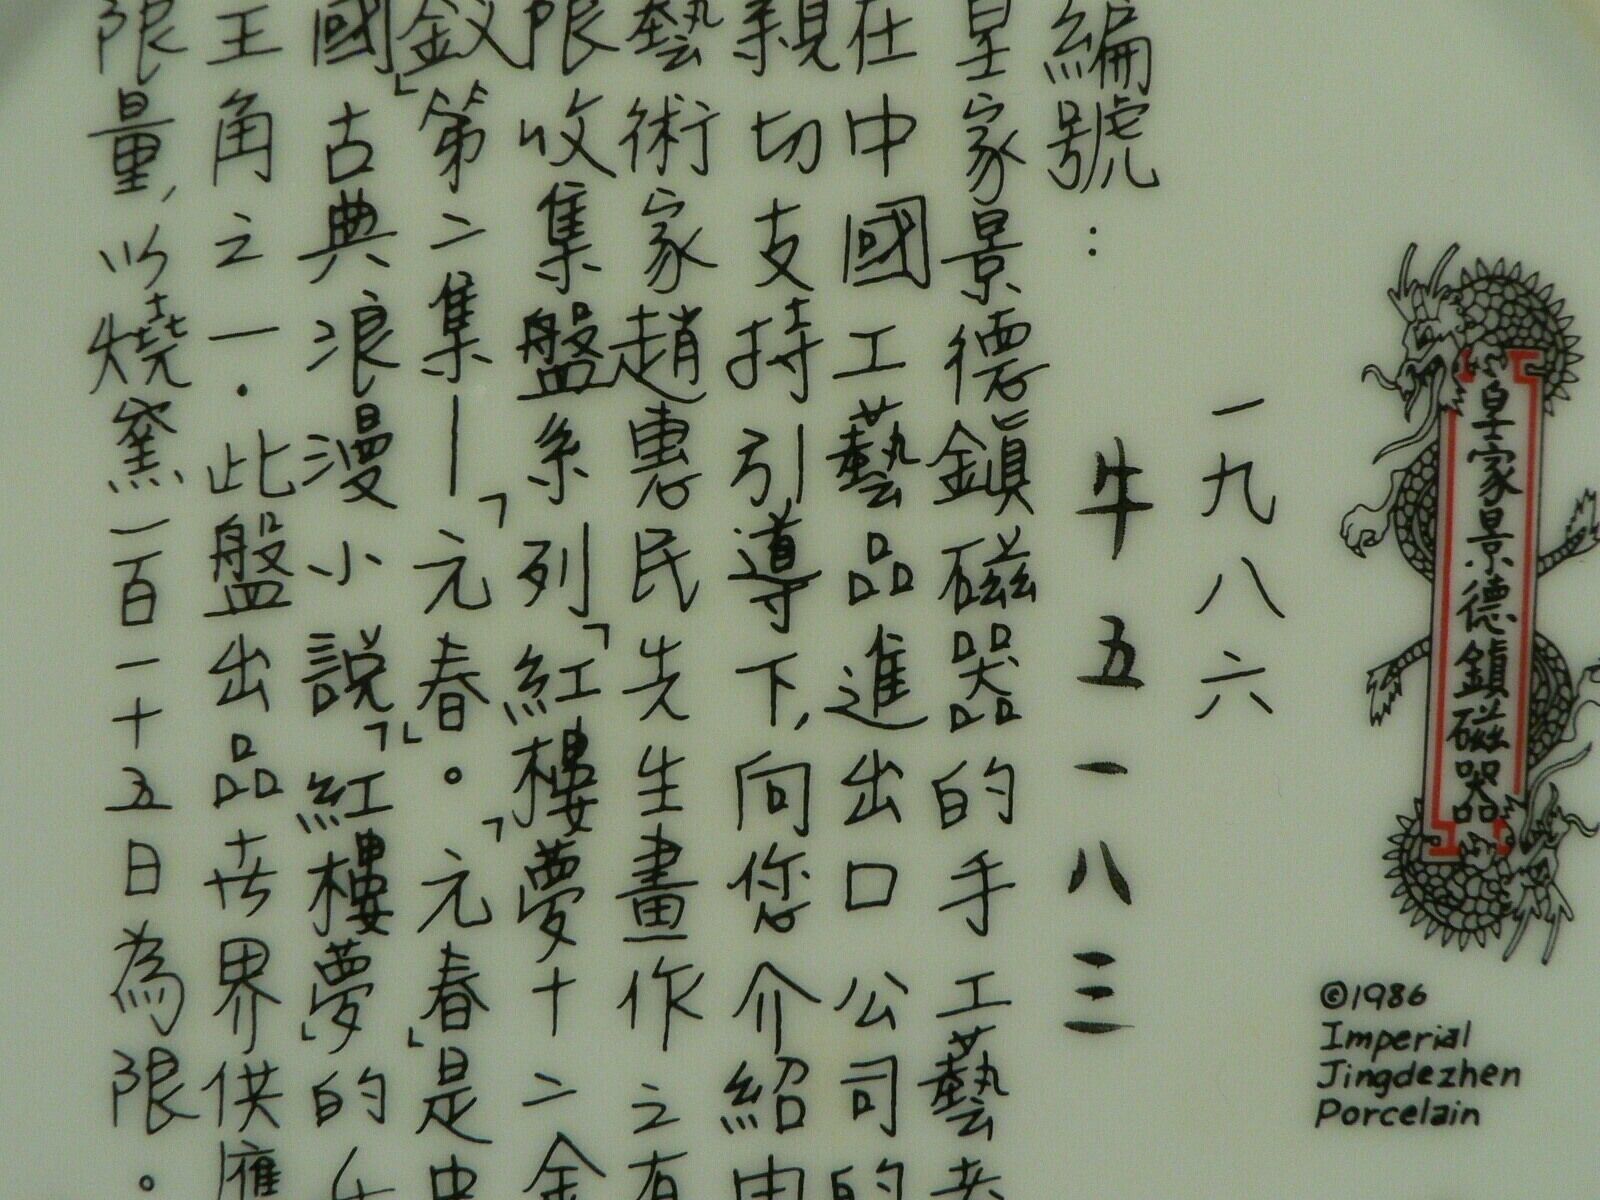 皇家景德鎮磁器
©1986
Imperial
Jingdezhen
Porcelain
一九八六
編號： 牛五一八三
皇家景德鎮磁器的手工藝者
在中國工藝品進出口公司的
親切支持引導下,向您介紹由
藝術家趙惠民先生畫作之有
限收集盤系列「紅樓夢十二金
釵」第二集—「元春」。「元春」是中
國古典浪漫小說「紅樓夢」的女
主角之一．此盤出品世界供應
限量,以燒窯一百一十五日為限。